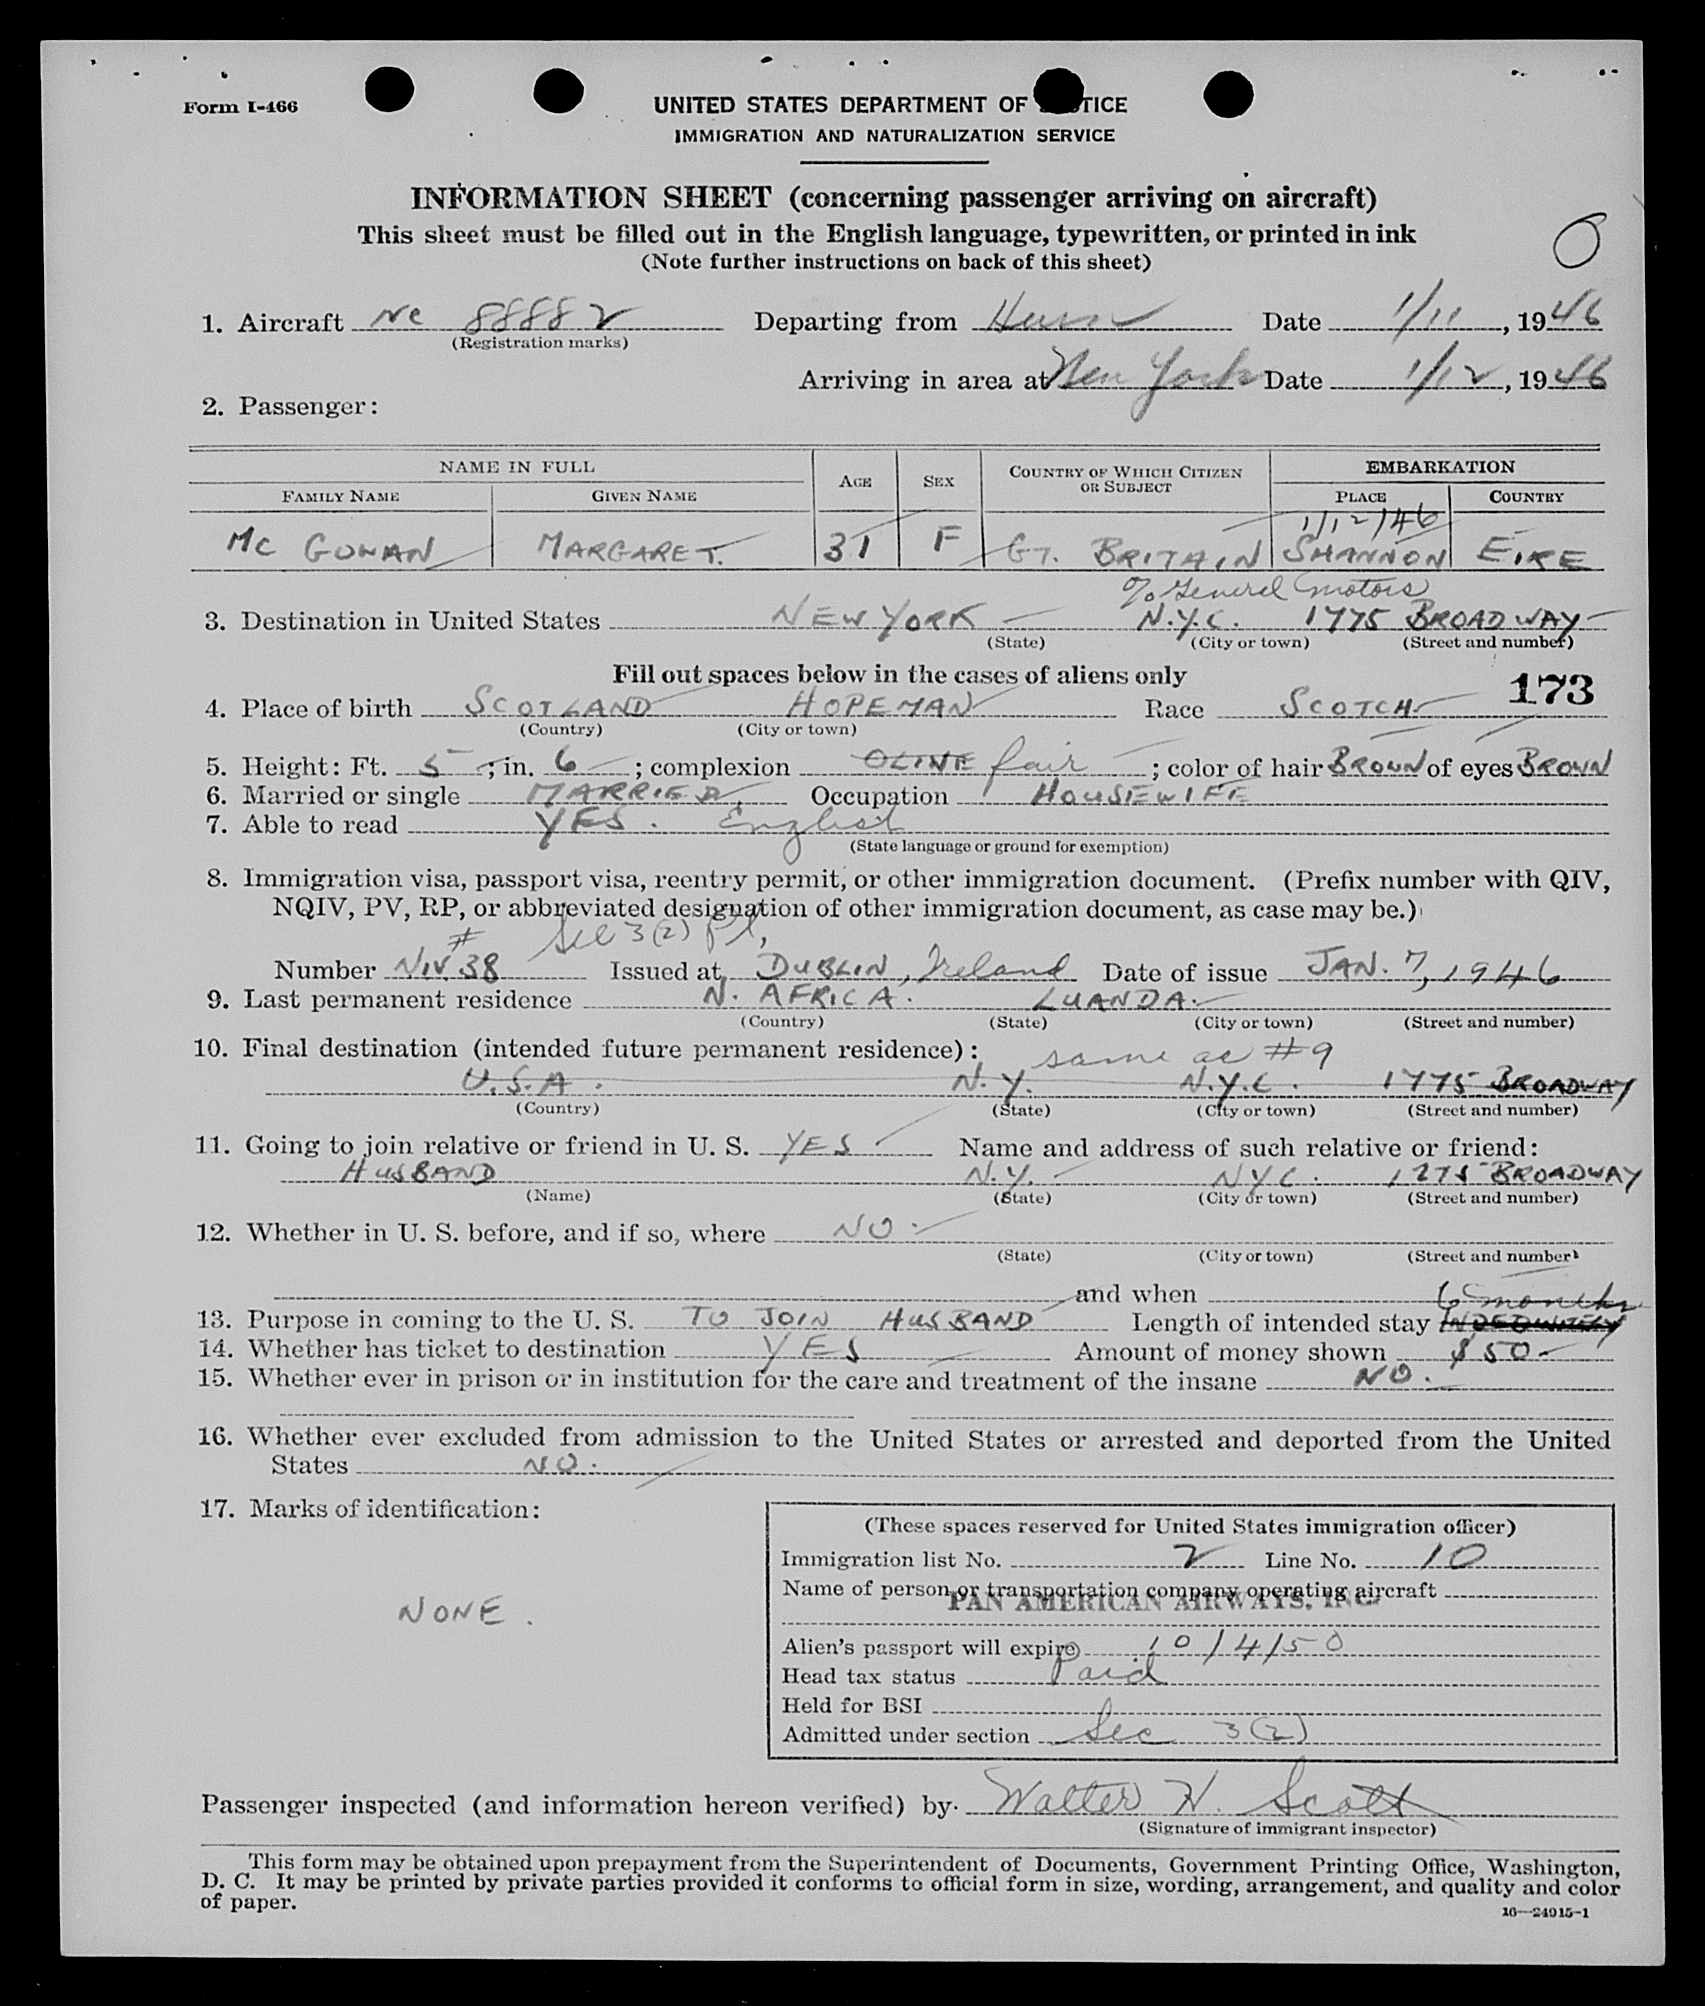 Form I-466
UNITED STATES DEPARTMENT OF TICE
IMMIGRATION AND NATURALIZATION SERVICE
INFORMATION SHEET (concerning passenger arriving on aircraft)
This sheet must be filled out in the English language, typewritten, or printed in ink
(Note further instructions on back of this sheet)
1. Aircraft NC 88882 Departing from Hurn Date 1/11, 1946
(Registration marks)
Arriving in area at New York Date 1/12, 1946
2. Passenger:
NAME IN FULL AGE SEX COUNTRY OF WHICH CITIZEN OR SUBJECT EMBARKATION
FAMILY NAME GIVEN NAME PLACE COUNTRY
1/12/46
MC GOWAN MARGARET. 31 F GT. BRITAIN SHANNON EIRE
c/o General Motors
3. Destination in United States NEW YORK N.Y.C. 1775 BROADWAY
(State) (City or town) (Street and number)
Fill out spaces below in the cases of aliens only
173
4. Place of birth SCOTLAND HOPEMAN Race SCOTCH
(Country) (City or town)
5. Height: Ft. 5; in. 6; complexion OLINE fair; color of hair BROWN of eyes BROWN
6. Married or single MARRIED. Occupation HOUSEWIFE
7. Able to read YES. English
(State language or ground for exemption)
8. Immigration visa, passport visa, reentry permit, or other immigration document. (Prefix number with QIV,
NQIV, PV, RP, or abbreviated designation of other immigration document, as case may be.)
# Sec 3(2)
Number NIV 38 Issued at DUBLIN, Ireland Date of issue JAN. 7, 1946
9. Last permanent residence N. AFRICA. LUANDA.
(Country) (State) (City or town) (Street and number)
10. Final destination (intended future permanent residence): same as #9
U.S.A. N.Y. N.Y.C. 1775 BROADWAY
(Country) (State) (City or town) (Street and number)
11. Going to join relative or friend in U. S. YES Name and address of such relative or friend:
HUSBAND N.Y. NYC. 1275 BROADWAY
(Name) (State) (City or town) (Street and number)
12. Whether in U. S. before, and if so, where NO.
(State) (City or town) (Street and number)
and when
6 months
13. Purpose in coming to the U. S. TO JOIN HUSBAND Length of intended stay
14. Whether has ticket to destination YES Amount of money shown $50
15. Whether ever in prison or in institution for the care and treatment of the insane NO.
16. Whether ever excluded from admission to the United States or arrested and deported from the United
States NO.
17. Marks of identification:
NONE.
(These spaces reserved for United States immigration officer)
Immigration list No. 2 Line No. 10
Name of person or transportation company operating aircraft
PAN AMERICAN AIRWAYS, INC.
Alien's passport will expire 10/4/50
Head tax status Paid
Held for BSI
Admitted under section Sec 3(2)
Passenger inspected (and information hereon verified) by Walter H. Scott
(Signature of immigrant inspector)
This form may be obtained upon prepayment from the Superintendent of Documents, Government Printing Office, Washington,
D. C. It may be printed by private parties provided it conforms to official form in size, wording, arrangement, and quality and color
of paper.
16—24915-1